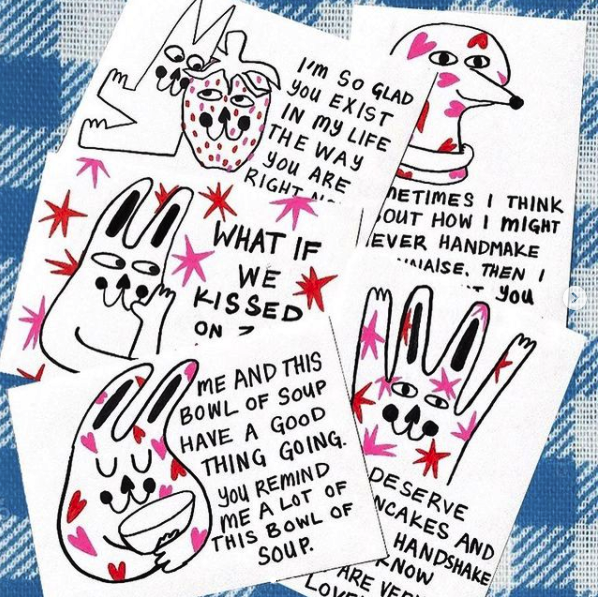 I'm SO GLAD
YOU EXIST
IN MY LIFE
THE WAY
YOU ARE
RIGHT
I THINK
HOW I MIGHT
HANDMAKE
THEN I
YOU
WHAT IF
WE
KISSED
ON
ME AND THIS
BOWL OF SOUP
HAVE A GOOD
THING GOING.
YOU REMIND
ME A LOT OF
THIS BOWL OF
SOUP.
DESERVE
AND
HANDSHAKE
ARE